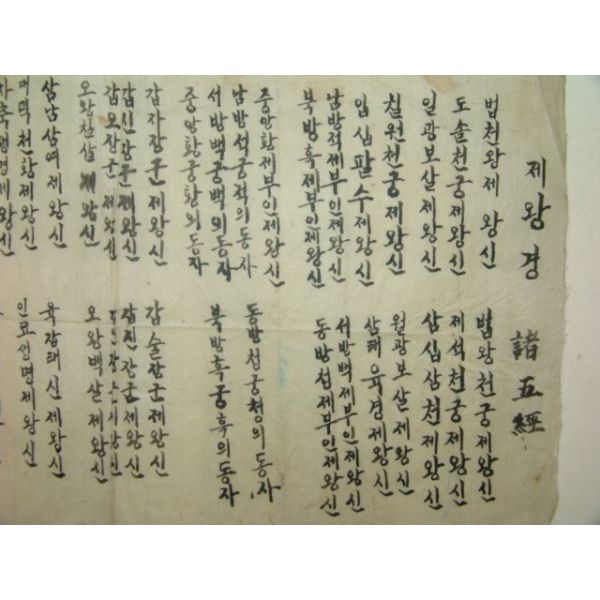 제왕경 諸王經
범천왕제왕신 범왕천궁제왕신
도솔천궁제왕신 제석천궁제왕신
일광보살제왕신 삼십삼천제왕신
칠원천궁제왕신 월광보살제왕신
입심팔수제왕신 삼태육경제왕신
남방적제부인제왕신 서방백제부인제왕신
북방흑제부인제왕신 동방청제부인제왕신
중앙황제부인제왕신
남방석궁적의동자 동방청궁청의동자
서방백궁백의동자 북방흑궁흑의동자
중앙황궁황의동자
갑자장군제왕신 갑술장군제왕신
갑신장군제왕신 갑진장군제왕신
갑오장군제왕신
오왕천살제왕신 오왕백살제왕신
삼남삼여제왕신 육갑태신제왕신
천황제왕신 인묘생명제왕신